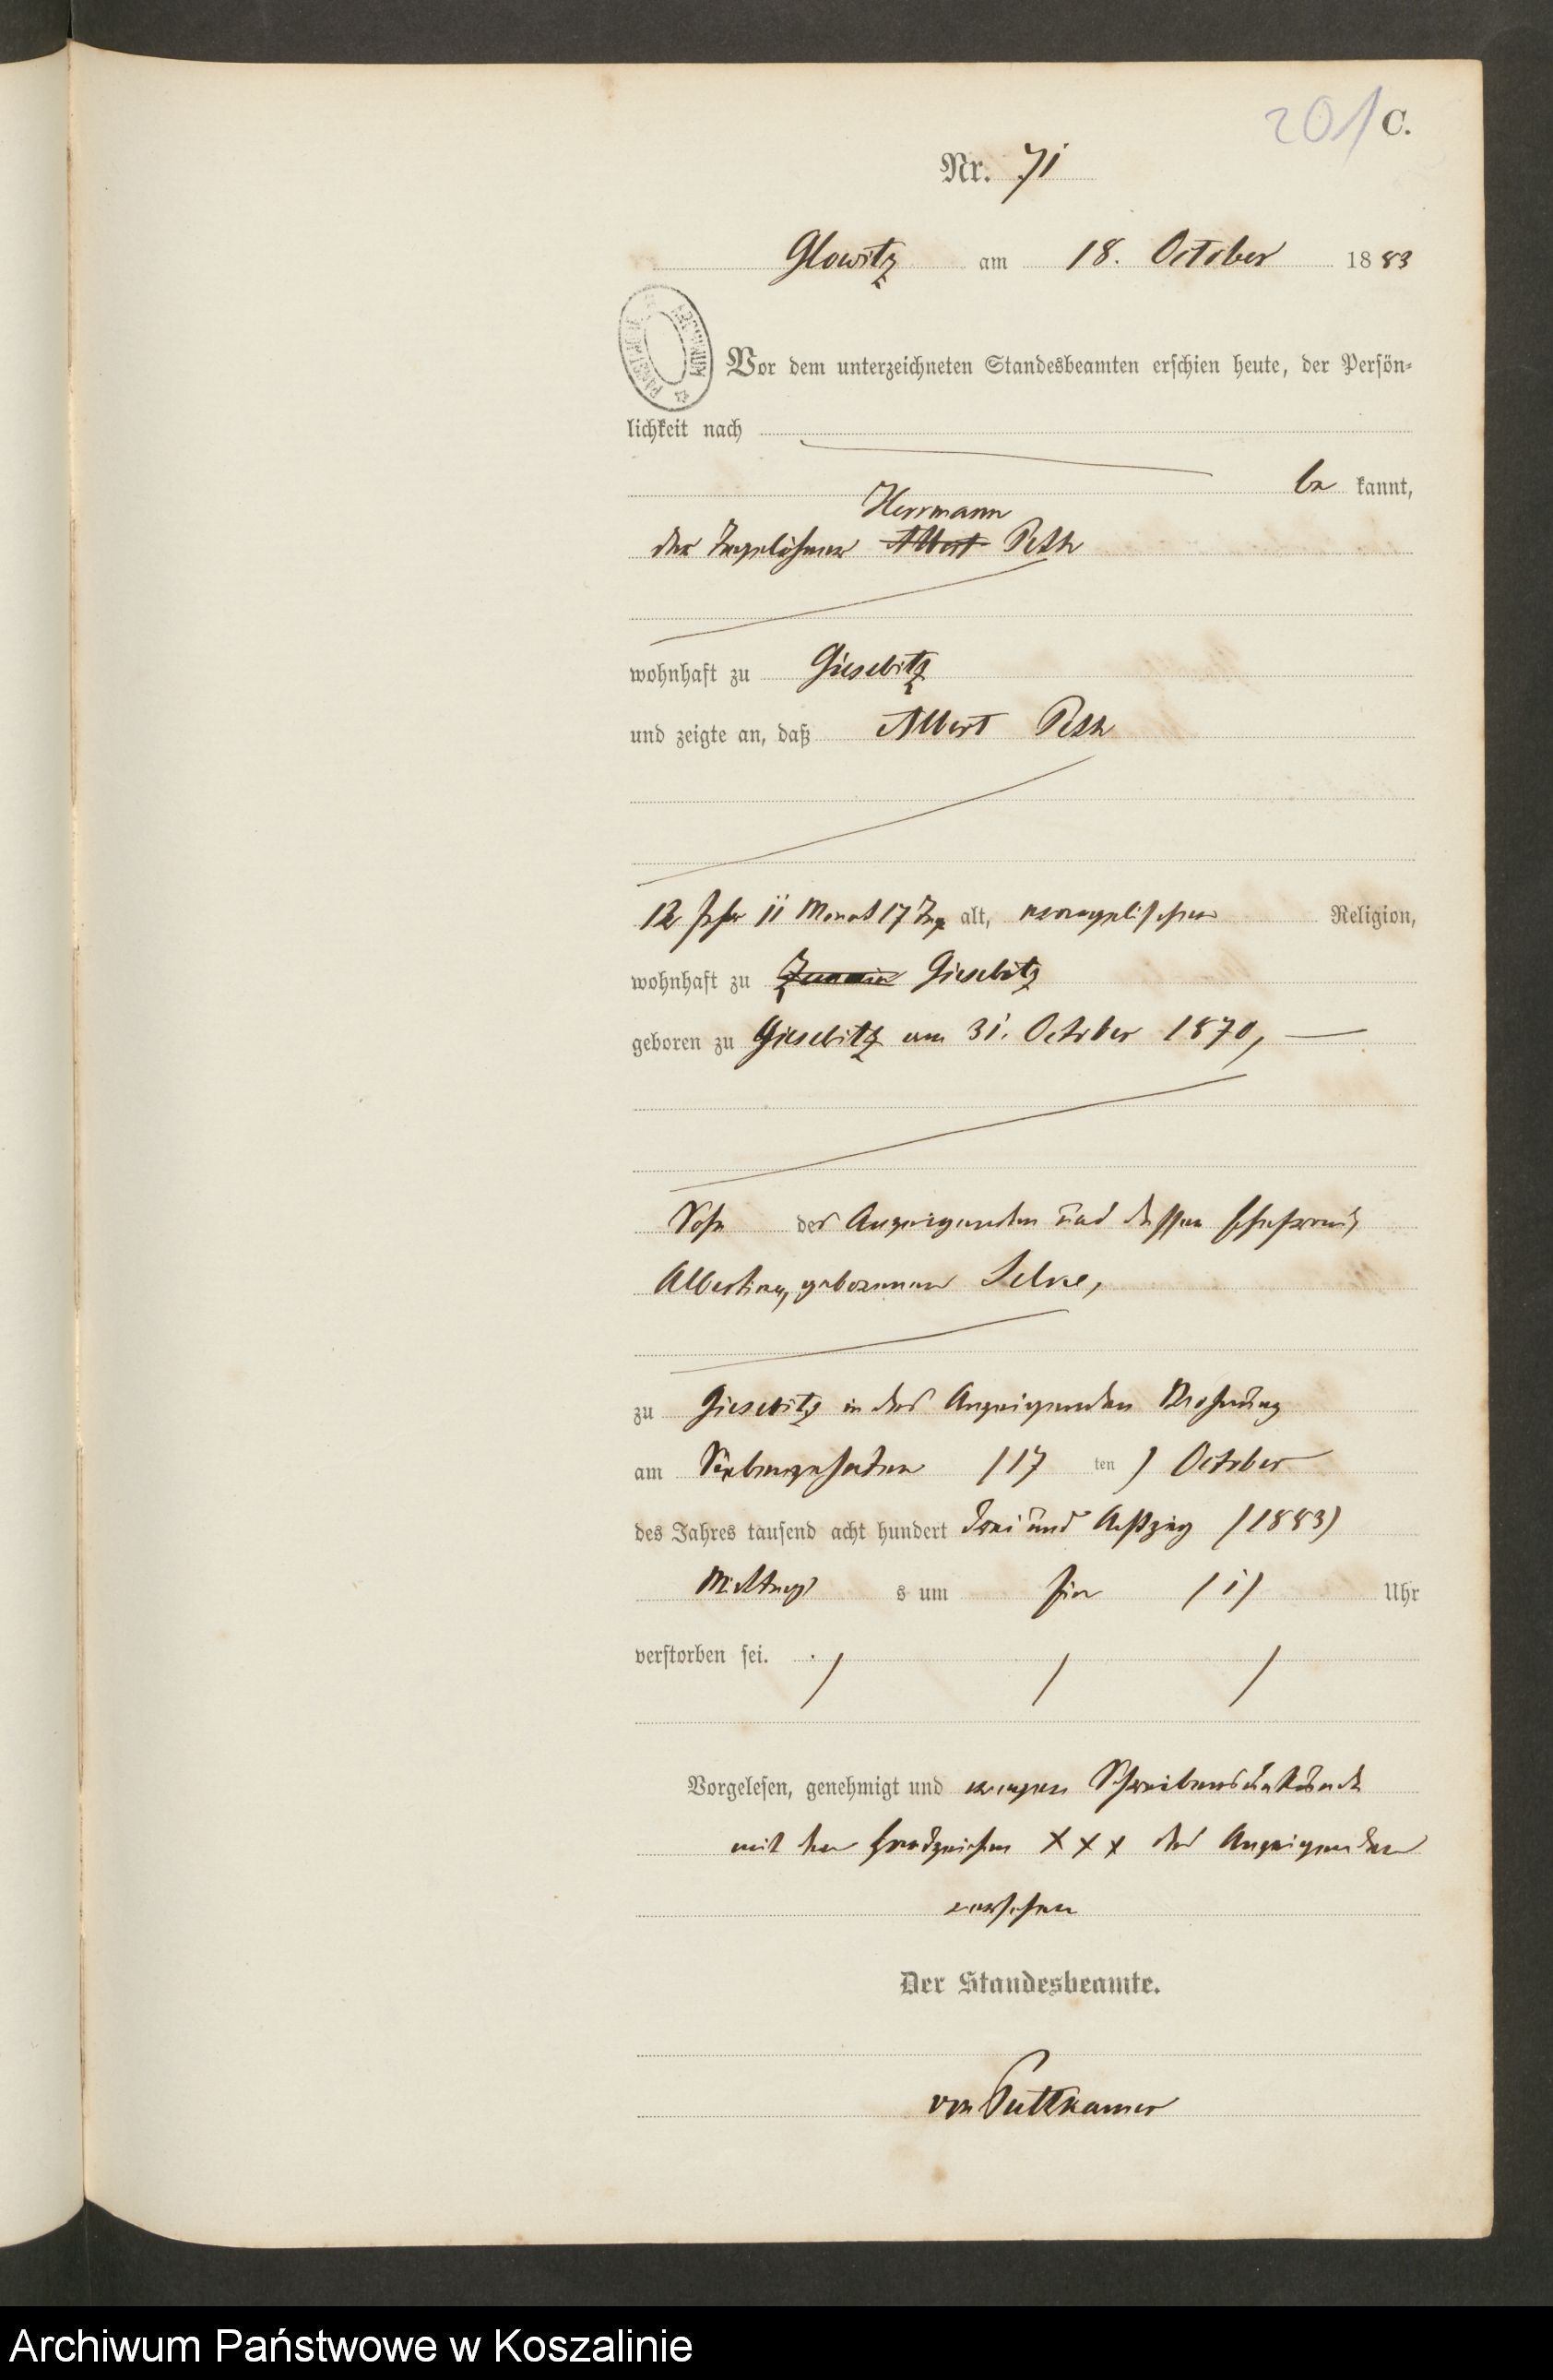 201 C.
Nr. 71
Glowitz am 18. October 1883
Vor dem unterzeichneten Standesbeamten erschien heute, der Persön-
lichkeit nach
be kannt,
Herrmann
der Tagelöhner Albert Peth
wohnhaft zu Giesebitz
und zeigte an, daß Albert Peth
12 Jahr 11 Monat 17 Tag alt, evangelischer Religion,
wohnhaft zu Giesebitz
geboren zu Giesebitz am 31. October 1870,
Sohn des Anzeigenden und dessen Ehefrau
Albertine, geborenen Selke,
zu Giesebitz in des Anzeigenden Wohnung
am Siebenzehnten /17 ten / October
des Jahres tausend acht hundert drei und Achtzig /1883/
Mittag s um Ein /1/ Uhr
verstorben sei.
Vorgelesen, genehmigt und wegen Schreibensunkunde
mit den Handzeichen XXX des Anzeigenden
versehen
Der Standesbeamte.
von Puttkamer
ARCHIWUM PAŃSTWOWE
Archiwum Państwowe w Koszalinie